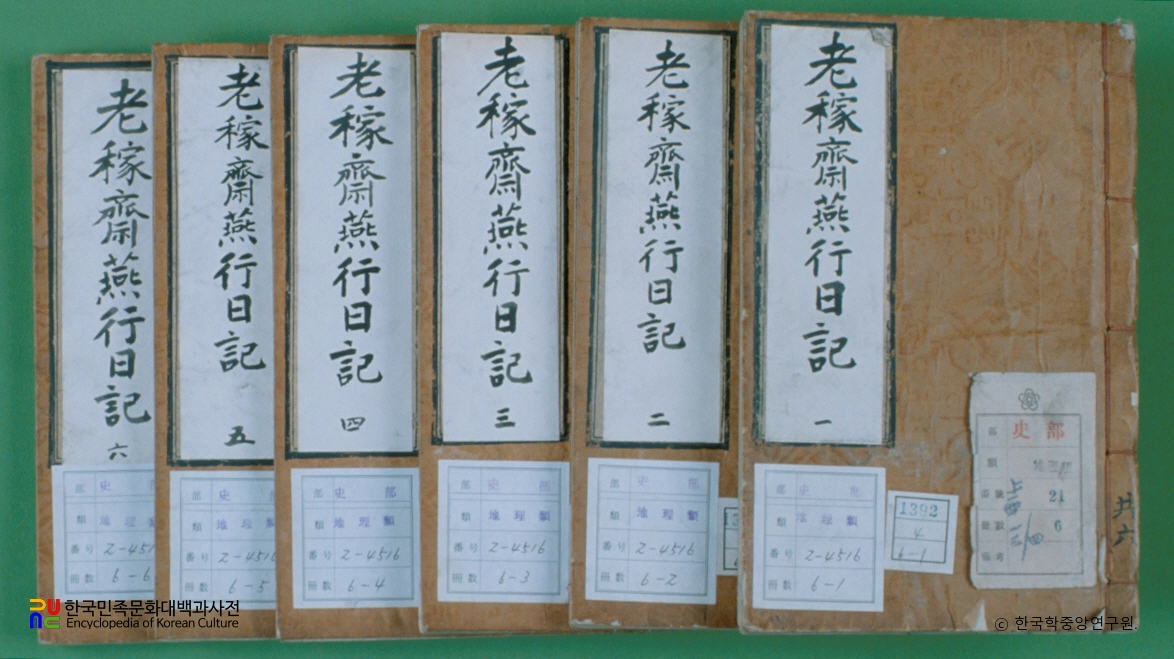 老稼齋燕行日記
一
老稼齋燕行日記
二
老稼齋燕行日記
三
老稼齋燕行日記
四
老稼齋燕行日記
五
老稼齋燕行日記
六
部 史 部
類 地理類
番号 2-4516
冊数 6-1
部 史 部
類 地理類
番号 2-4516
冊数 6-2
部 史 部
類 地理類
番号 2-4516
冊数 6-3
部 史 部
類 地理類
番号 2-4516
冊数 6-4
部 史 部
類 地理類
番号 2-4516
冊数 6-5
部 史 部
類 地理類
番号 2-451
冊数 6-6
1392
4
6-1
13
部 史部
類
21
冊數 6
備考
共六
한국민족문화대백과사전
Encyclopedia of Korean Culture
ⓒ 한국학중앙연구원.